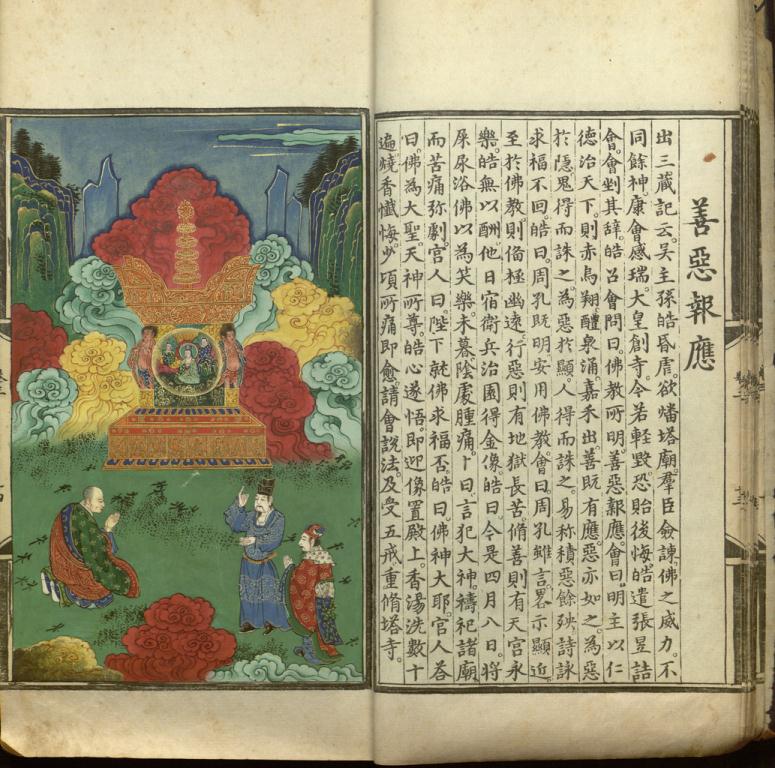 善惡報應
出三藏記云。吴主孫皓昏虐。欲燔塔廟。羣臣僉諫。佛之威力。不
同餘神。康會感瑞。大皇創寺。今若輕毀。恐貽後悔。皓遣張昱詰
會。會剉其辞。皓召會問曰。佛教所明。善惡報應。會曰。明主以仁
德治天下。則赤烏翔。醴泉涌。嘉禾出。善既有應。惡亦如之。為惡
於隱。鬼得而誅之。為惡於顯。人得而誅之。易称積惡餘殃。詩詠
求福不回。皓曰。周孔既明。安用佛教。會曰。周孔雖言。畧示顯近。
至於佛教。則俻極幽遠。行惡則有地獄長苦。脩善則有天宫永
樂。皓無以酬。他日宿衛兵治園。得金像。皓曰。今是四月八日。将
屎尿浴佛。以為笑樂。未暮。陰處腫痛。卜曰。言犯大神。禱祀諸廟
而苦痛弥劇。官人曰。陛下就佛求福否。皓曰。佛神大耶。官人荅
曰。佛為大聖。天神所尊。皓心遂悟。即迎像置殿上。香湯洗數十
遍。燒香懺悔。少頃所痛即愈。請會説法。及受五戒。重脩塔寺。